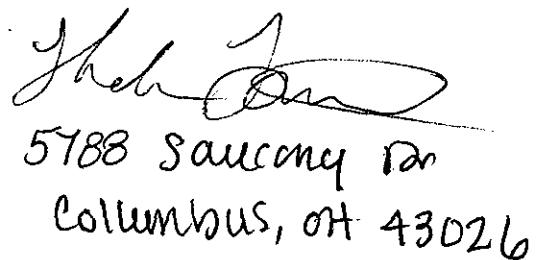 5788 Saucony Dr
Collumbus, OH 43026